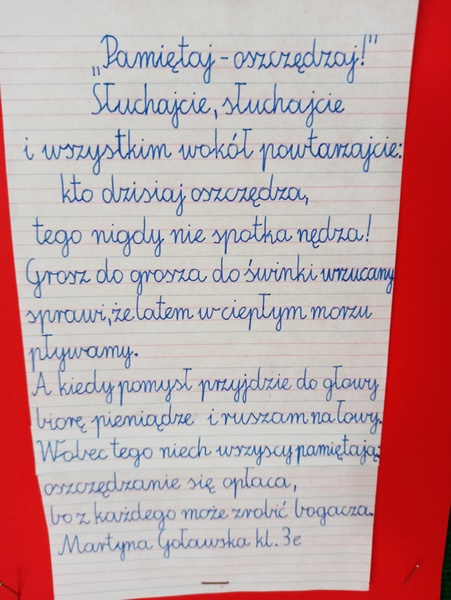 „Pamiętaj - oszczędzaj!"
Słuchajcie, słuchajcie
i wszystkim wokół powtarzajcie:
kto dzisiaj oszczędza,
tego nigdy nie spotka nędza!
Grosz do grosza do świnki wrzucany
sprawi, że latem w ciepłym morzu
pływamy.
A kiedy pomysł przyjdzie do głowy
biorę pieniądze i ruszam na łowy.
Wobec tego niech wszyscy pamiętają:
oszczędzanie się opłaca,
bo z każdego może zrobić bogacza.
Martyna Goławska kl. 3e